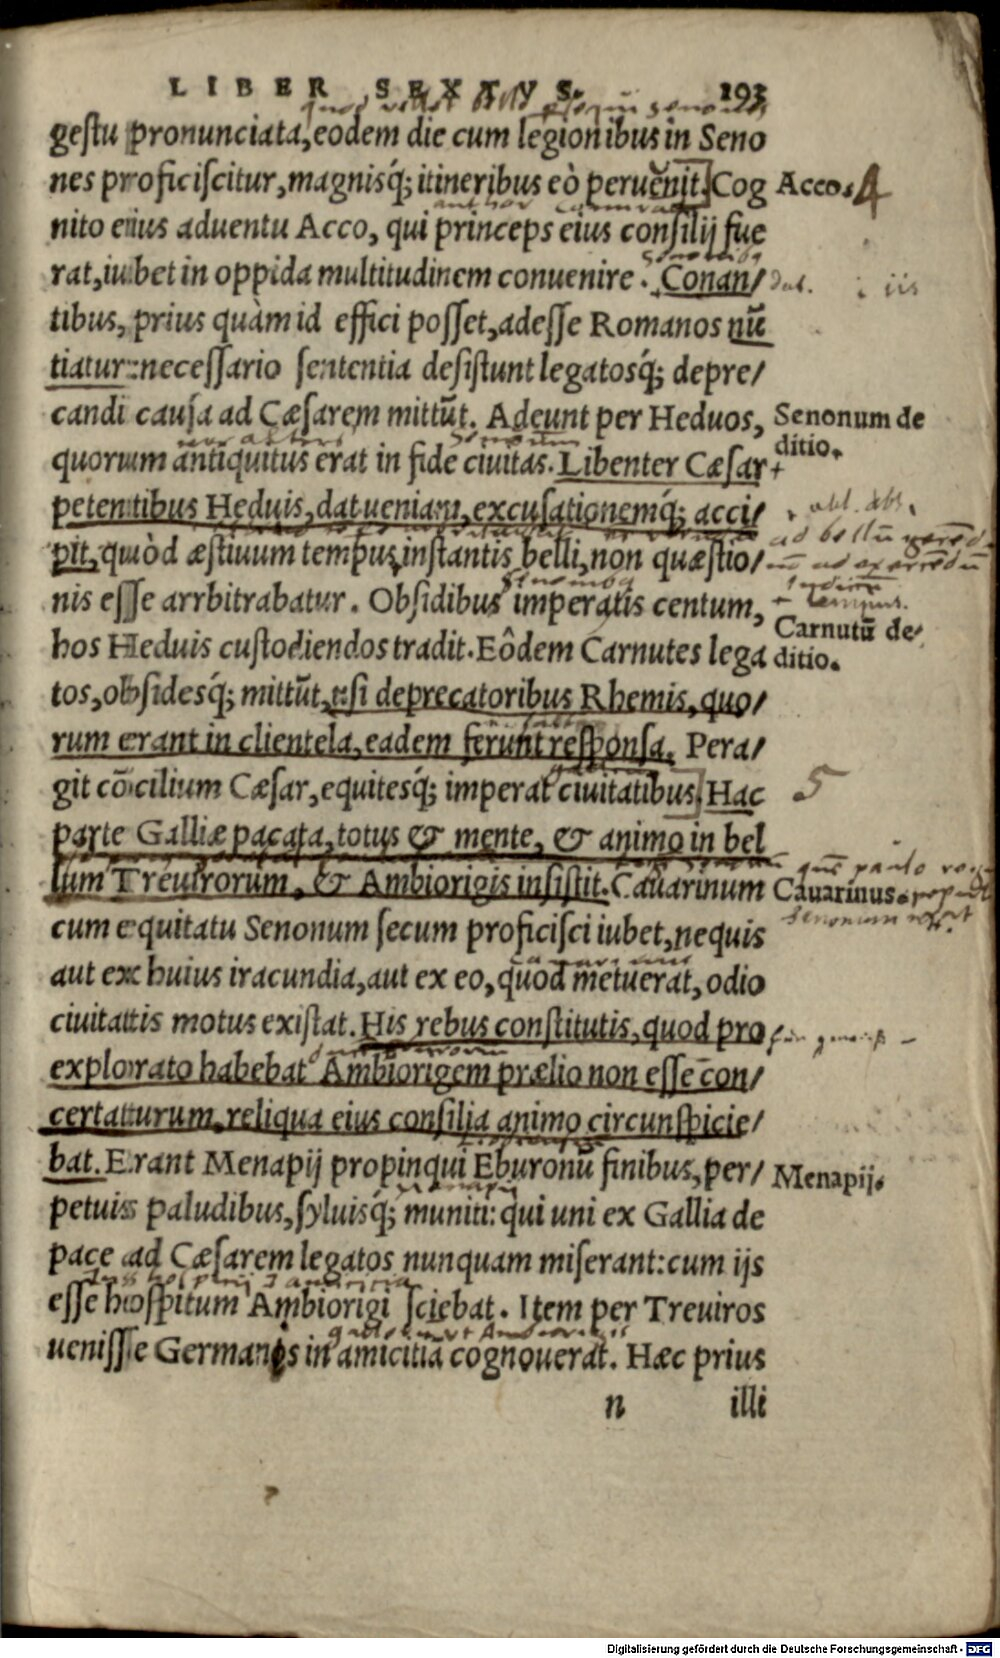 LIBER SEXTVS. 193
gestu pronunciata, eodem die cum legionibus in Seno
nes proficiscitur, magnisq́; itineribus eò peruenit. Cog
Acco. 4
nito eius aduentu Acco, qui princeps eius consilij fue
rat, iubet in oppida multitudinem conuenire. Conan/
dat. iis
tibus, prius quàm id effici posset, adesse Romanos nũ
tiatur: necessario sententia desistunt legatosq́; depre/
candi causa ad Cæsarem mittũt. Adeunt per Heduos,
Senonum de
ditio.
quorum antiquitus erat in fide ciuitas. Libenter Cæsar
petentibus Heduis, dat ueniam, excusationemq́; acci/
abl. abs.
pit, quòd æstiuum tempus instantis belli, non quæstio/
nis esse arrbitrabatur. Obsidibus imperatis centum,
tempus.
Carnutũ de/
ditio.
hos Heduis custodiendos tradit. Eôdem Carnutes lega
tos, obsidesq́; mittũt, usi deprecatoribus Rhemis, quo/
rum erant in clientela, eadem ferunt responsa. Pera/
git cõcilium Cæsar, equitesq́; imperat ciuitatibus. Hac
5
parte Galliæ pacata, totus & mente, & animo in bel
lum Treuirorum, & Ambiorigis insistit. Cauarinum
Cauarinus.
cum equitatu Senonum secum proficisci iubet, ne quis
aut ex huius iracundia, aut ex eo, quod metuerat, odio
ciuitatis motus existat. His rebus constitutis, quod pro
explorato habebat Ambiorigem prælio non esse con/
certaturum, reliqua eius consilia animo circunspicie/
bat. Erant Menapij propinqui Eburonũ finibus, per/
Menapij.
petuis paludibus, syluisq́; muniti: qui uni ex Gallia de
pace ad Cæsarem legatos nunquam miserant: cum ijs
esse hospitum Ambiorigi sciebat. Item per Treuiros
uenisse Germanos in amicitiã cognouerat. Hæc prius
n illi
Digitalisierung gefördert durch die Deutsche Forschungsgemeinschaft - DFG